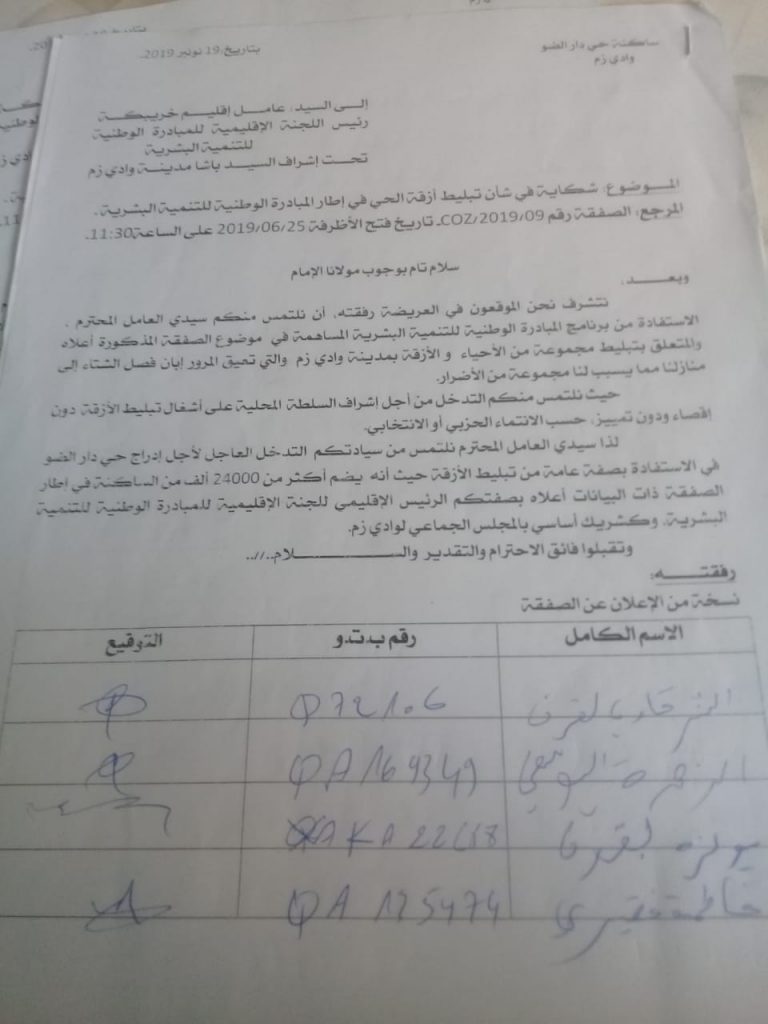 ساكنة حي دار الضو
وادي زم
بتاريخ: 19 نونبر 2019.
إلى السيد: عامل إقليم خريبكة
رئيس اللجنة الإقليمية للمبادرة الوطنية
للتنمية البشرية
تحت إشراف السيد باشا مدينة وادي زم
الموضوع: شكاية في شأن تبليط أزقة الحي في إطار المبادرة الوطنية للتنمية البشرية.
المرجع: الصفقة رقم COZ/2019/09. تاريخ فتح الأظرفة 2019/06/25 على الساعة 11:30.
سلام تام بوجوب مولانا الإمام
وبعد،
نتشرف نحن الموقعون في العريضة رفقته، أن نلتمس منكم سيدي العامل المحترم،
الاستفادة من برنامج المبادرة الوطنية للتنمية البشرية المساهمة في موضوع الصفقة المذكورة أعلاه
والمتعلق بتبليط مجموعة من الأحياء و الأزقة بمدينة وادي زم والتي تعيق المرور إبان فصل الشتاء إلى
منازلنا مما يسبب لنا مجموعة من الأضرار.
حيث نلتمس منكم التدخل من أجل إشراف السلطة المحلية على أشغال تبليط الأزقة دون
إقصاء ودون تمييز، حسب الانتماء الحزبي أو الانتخابي.
لذا سيدي العامل المحترم نلتمس من سيادتكم التدخل العاجل لأجل إدراج حي دار الضو
في الاستفادة بصفة عامة من تبليط الأزقة حيث أنه يضم أكثر من 24000 ألف من الساكنة في إطار
الصفقة ذات البيانات أعلاه بصفتكم الرئيس الإقليمي للجنة الإقليمية للمبادرة الوطنية للتنمية
البشرية. وكشريك أساسي بالمجلس الجماعي لوادي زم.
وتقبلوا فائق الاحترام والتقدير والســـــلام..//..
رفقتـــه:
نسخة من الإعلان عن الصفقة
الاسم الكامل رقم ب ت و التوقيع
Q72106
QA169349
QA195474